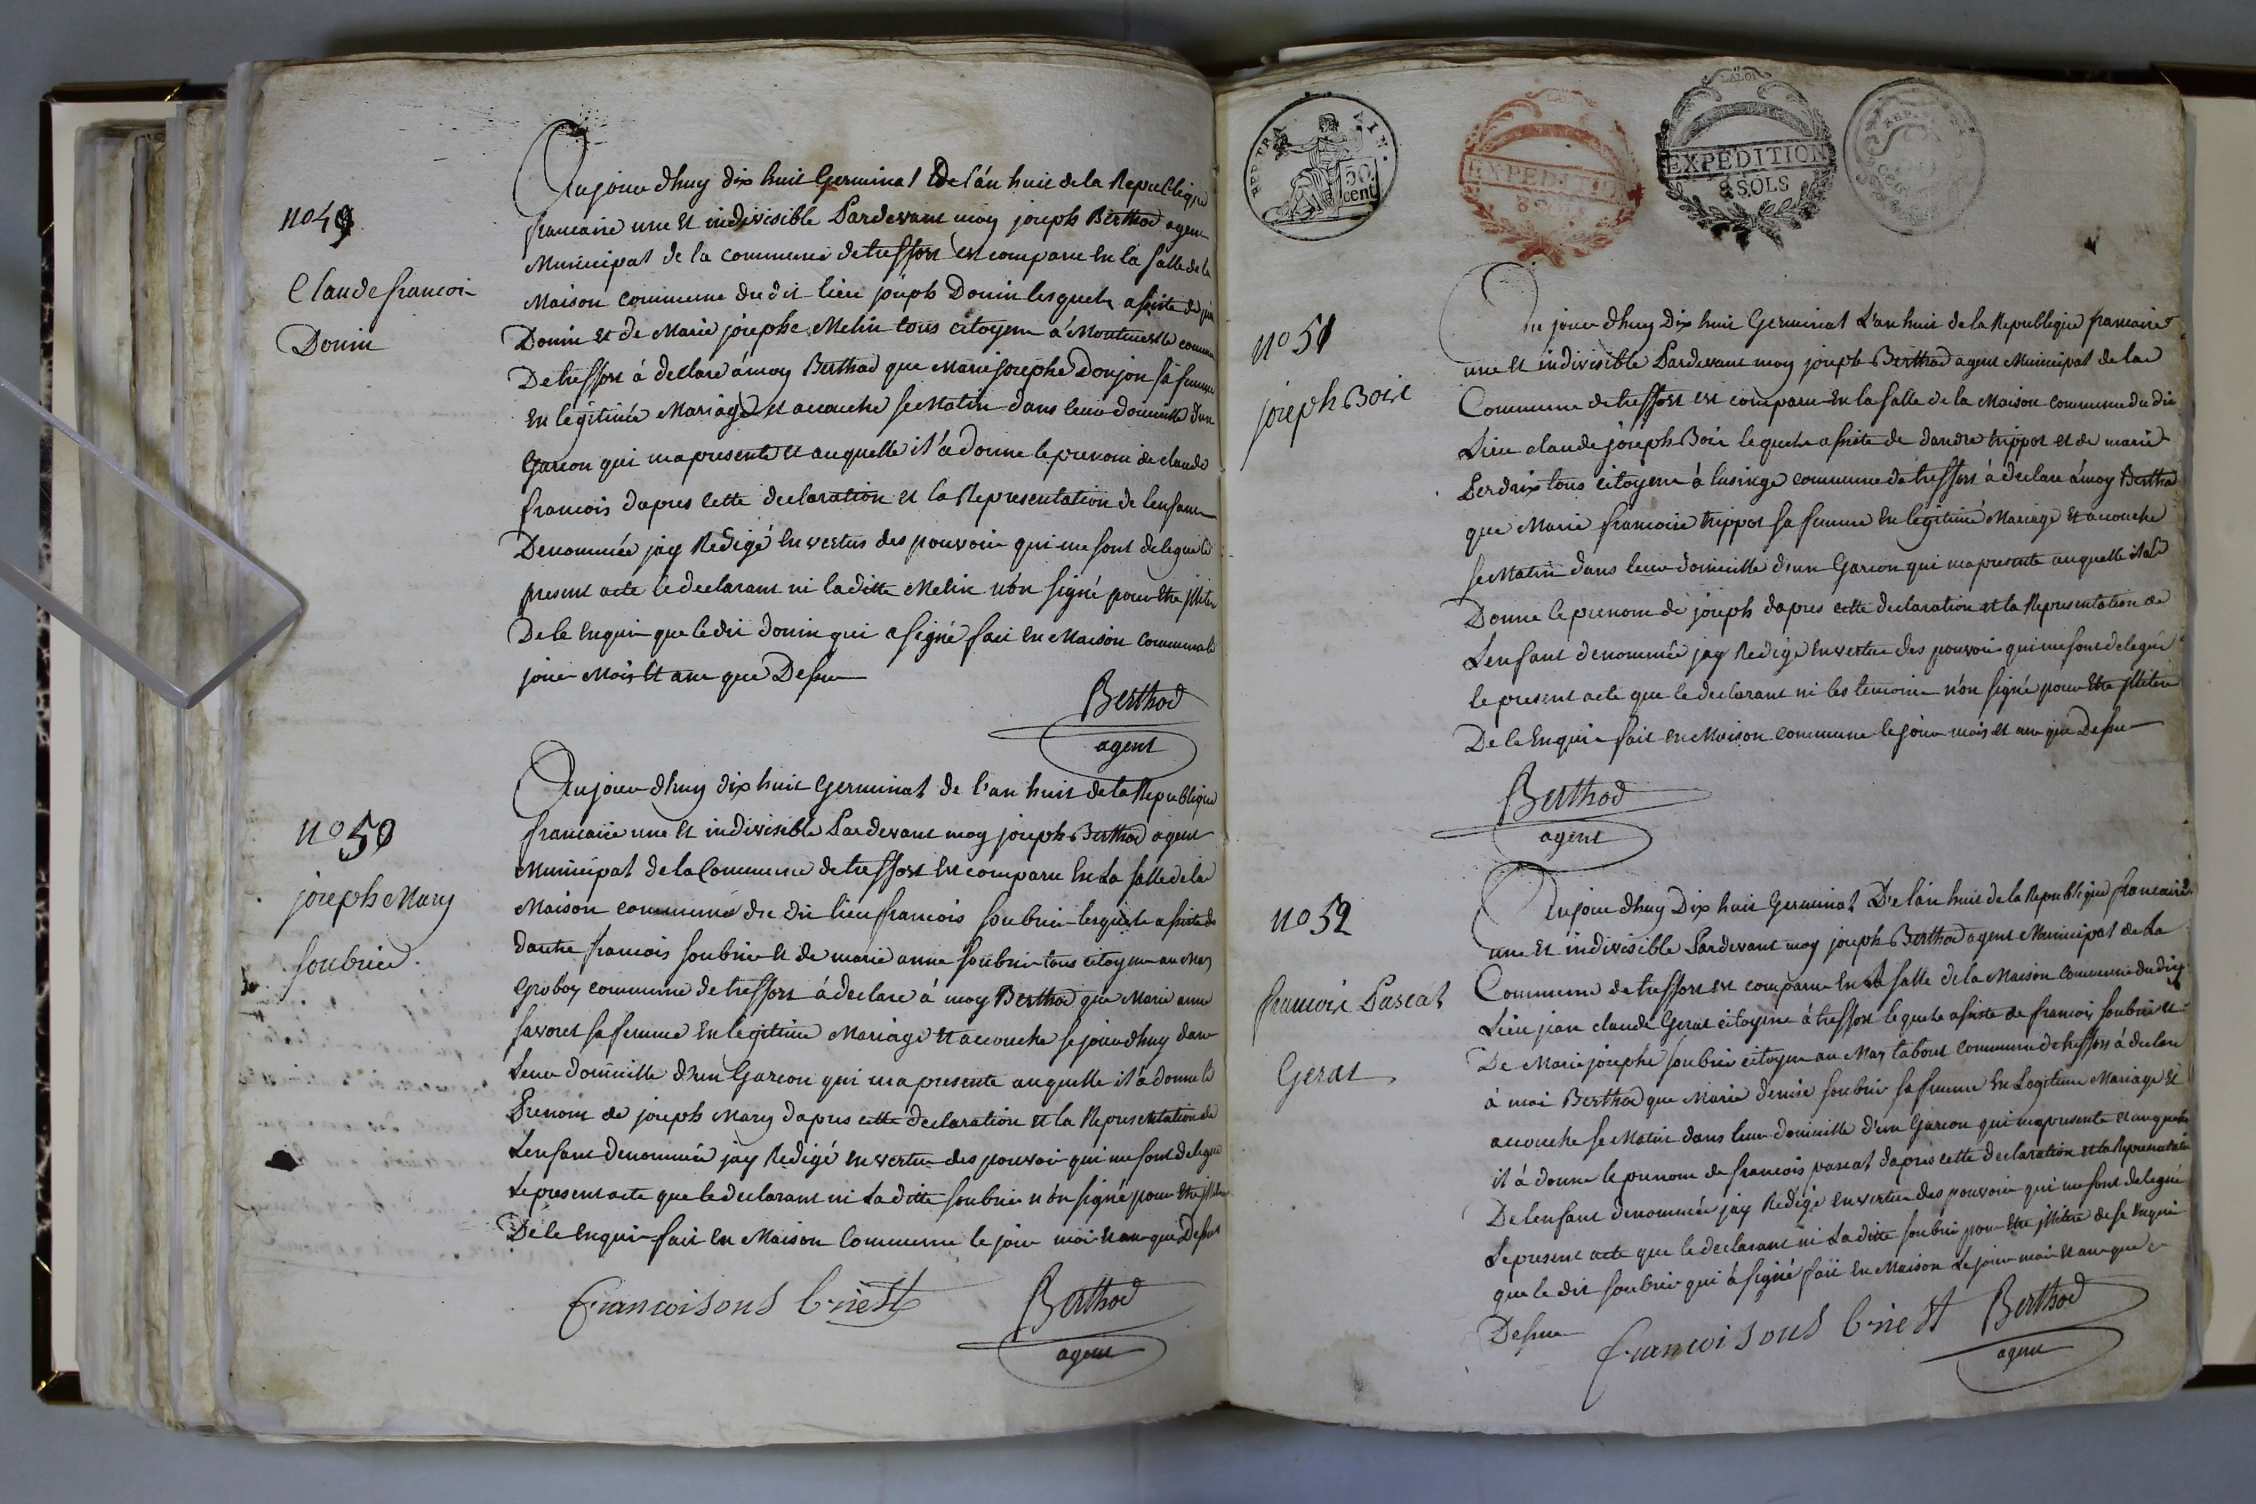 no 49
Claude francois
Donin
Aujourdhuy dix huit Germinal de l'an huit de la Republique
francaise une et indivisible Pardevant moy joseph Berthod agent
Municipal de la commune de treffort est comparu en la salle de la
Maison commune du dit lieu joseph Donin lesquels assiste de
Donin et de Marie josephe Melin tous citoyens à commune
De treffort à declaré à moy Berthod que Marie josephe Donjon sa femme
En légitime Mariage et accouche se Matin dans leur domicille d'un
Garcon qui ma presenté et auquelle il à donne le prenom de claude
francois dapres cette declaration et la Representation de lenfant
Denommée jay Redigé en vertus des pouvoir qui me sont delegué le
present acte le declarant ni laditte Melin n'on signé pour etre jlliteré
De le Enquir que le dit donin qui a signé fait en Maison commune le
jour Mois et an que Dessu
Berthod
agent
no 50
joseph Mary
soubrier
Aujourdhuy dix huit Germinal de l'an huit de la Republique
francaise une et indivisible Pardevant moy joseph Berthod agent
Municipal de la Commune de treffort est comparu En La salle de la
Maison commune du dit lieu francois soubrier lesquels assiste de
dautre francois soubrier et de marie anne soubrier tous citoyens au Mas
Groboz commune de treffort à declaré à moy Berthod que Marie anne
savoret sa femme en legitime Mariage et accouche se jourdhuy dans
Leur domicille d'un Garcon qui ma presenté auquelle il à donne le
Prenom de joseph Mary dapres cette declaration et la Representation de
Lenfant denommée jay Redigé en vertue des pouvoir qui me sont delegué
Le present acte que le declarant ni La ditte soubrier n'on signé pour etre jlliteré
De le enquir fait en Maison Commune le jour moi et an que Dessus
francoisous briest
Berthod
agent
REP. FRA. 50 cent.
LA LOI
EXPEDITION
8 SOLS
LA LOI
EXPEDITION
8 SOLS
no 51
joseph Boir
Du jour dhuy Dix huit Germinal L'an huit de la Republique francaise
une et indivisible Pardevant moy joseph Berthod agent Municipal de la
Commune de treffort est comparu En la salle de la Maison commune du dit
Lieu claude joseph Boir lequels assiste de dandre trippot et de marie
Perdrix tous citoyens à lusinge commune de treffort à declare à moy Berthod
que Marie francoise trippot sa femme En legitime Mariage et accouche
se Matin dans leur domicille d'un Garcon qui ma presenté auquelle il à
Donne le prenom de joseph dapres cette declaration et la Representation de
Lenfant denommée jay Redigé en vertue des pouvoir qui me sont delegué
le present acte que le declarant ni les temoins n'on signé pour etre jlliteré
De le Enquir fait en Maison commune le jour mois et an que Dessu
Berthod
agent
no 52
francois Pascal
Gerat
Aujourdhuy Dix huit Germinal De l'an huit de la Republique francaise
une et indivisible Pardevant moy joseph Berthod agent Municipal de La
Commune de treffort est comparu En La salle de la Maison commune du dit
Lieu jean claude Gerat citoyens à treffort lequels assiste de francois soubrier et
De Marie josephe soubrier citoyens au Mas tabout commune de treffort à declaré
à moi Berthod que Marie denise soubrier sa femme En Legitime Mariage et
accouche se Matin dans leur domicille d'un Garcon qui ma presenté et auquelle
il à donne le prenom de francois pascal dapres cette declaration et la Representation
De lenfant denommée jay Redigé en vertue des pouvoir qui me sont delegué
Le present acte que le declarant ni La ditte soubrier pour etre jlliteré de se Enquir
que le dit soubrier qui à signé fait En Maison Le jour moi et an que
Dessu
francoi sous briest
Berthod
agent